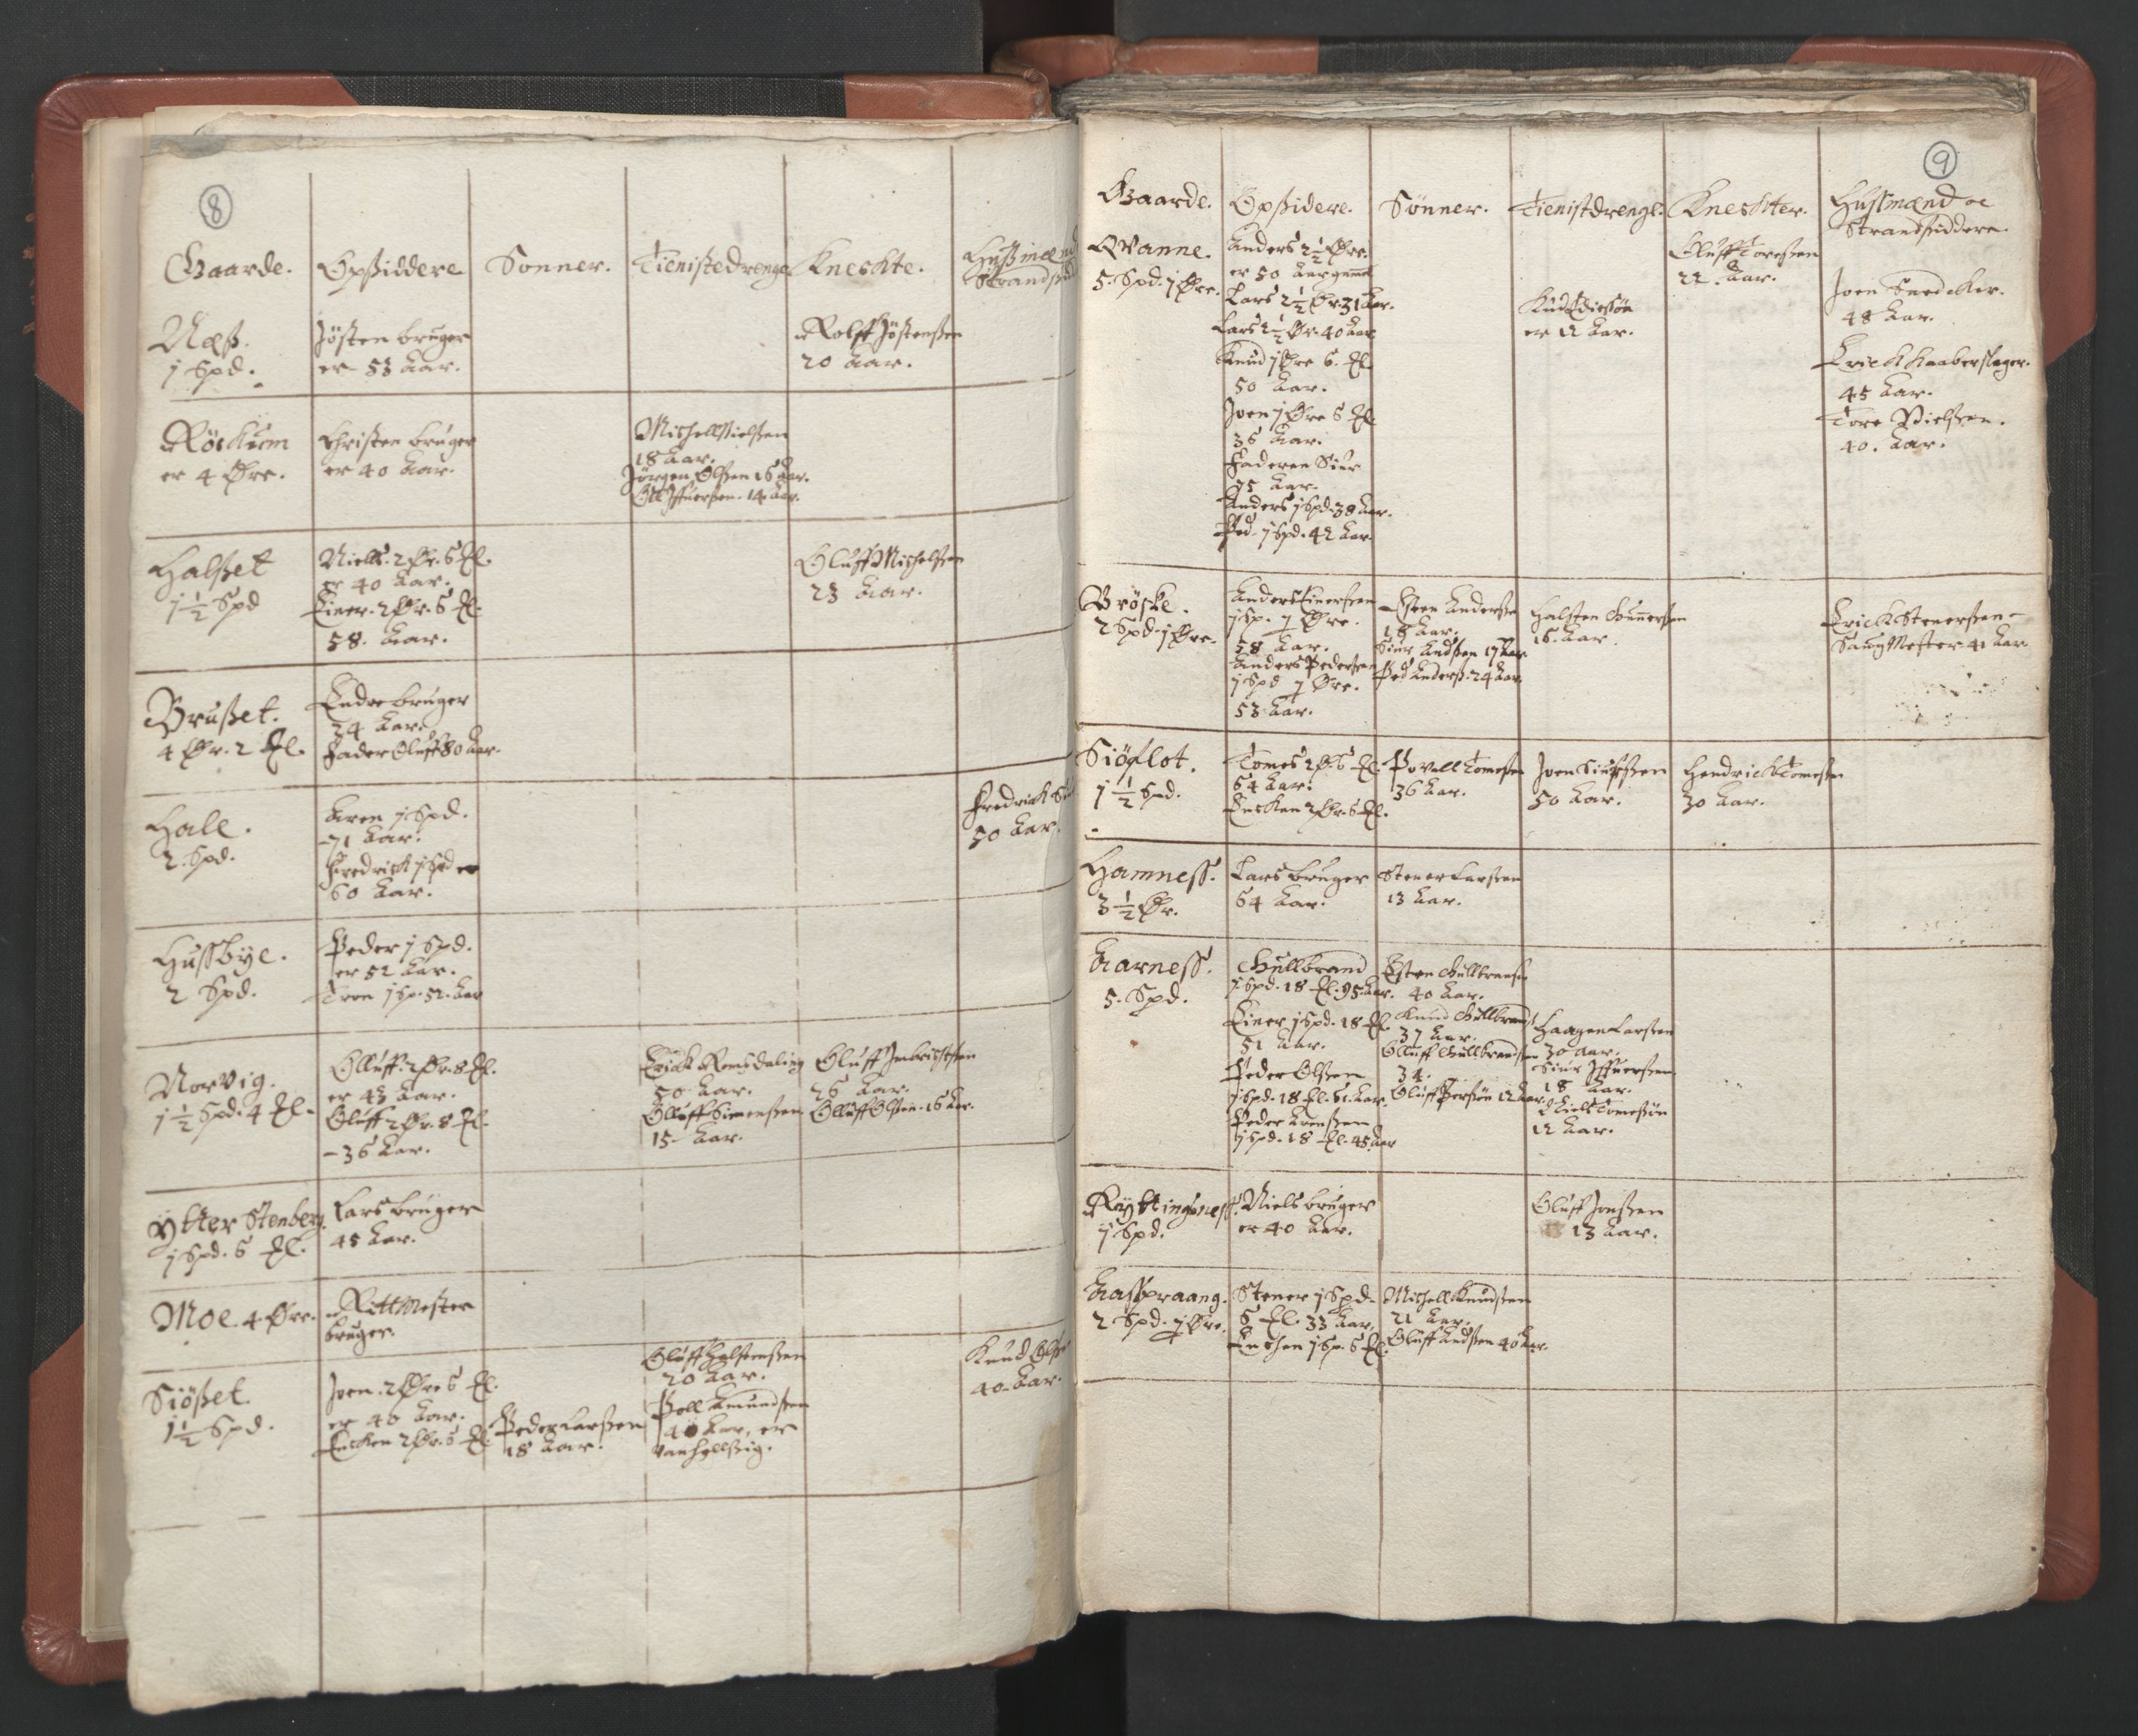 8
Gaarde. Opsiddere Sonner. Tienistedrenge Kneckte. Hussmænd
Strandsid
Næss.
1 Spd.
Jøsten bruger
er 53 Aar.
Rolff Jøstenssen
20 Aar.
Röskum
er 4 Øre.
Christen bruger
er 40 Aar.
Michell Nielssen
18 Aar.
Jörgen Olssen 16 Aar.
Oll Iffuerssen. 14 Aar.
Halsset
1½ Spd
Niells. 2 Ør. 6 Ml.
er 40 Aar.
Einer. 2 Ør. 6 Ml.
58. Aar.
Oluff Michelssen
23 Aar.
Brusset.
4 Ør. 2 Ml.
Endre bruger
24 Aar.
Fader Oluff 80 Aar.
Hall.
2. Spd.
Aren 1 Spd.
71 Aar.
Fredrick 1 Spd er
60 Aar.
Fredrick
50 Aar.
Hussbye.
2 Spd.
Peder 1 Spd.
er 52 Aar.
Tron 1 Sp. 52. Aar
Norvig.
1½ Spd. 4 Ml.
Olluff. 2 Ør. 8 Ml.
er 43 Aar.
Oluff 2 Ør. 8 Ml.
36 Aar.
Erick Romsdaling
50 Aar.
Olluff Simenssen
15 Aar.
Oluff Imbrichtsen
26 Aar.
Olluff Olssen. 16 Aar.
Ytter Stenberg.
1 Spd. 6 Ml.
Lars bruger
45 Aar.
Moe. 4 Øre.
Rittmester
bruger.
Siösset.
1½ Spd.
Joen. 2 Øre 6 Ml.
er 40 Aar.
Encken 2 Ør. 6 Ml.
Peder Larssen
18 Aar.
Oluff Halstenssen
20 Aar.
Poll Amundssen
40 Aar, er
vanhellssig.
Knud Olss
40. Aar.
9
Gaarde. Opsidere. Sönner. Tienistdrenge. Kneckter. Hussmænd oc
Strandsiddere.
Qvanne.
5. Spd. 1 Øre.
Anders 2½ Øre.
er 50 Aar gammel
Lars 2½ Ør. 31 Aar.
Lars 2½ Ør. 40 Aar
Knud 1 Øre 6. Ml.
50 Aar.
Joen 1 Øre 6 Ml.
36 Aar.
Faderen Siur
75 Aar.
Anders 1 Spd. 38 Aar.
Ped. 1 Spd. 42 Aar
er 12 Aar.
Oluff Toressen
22. Aar.
Joen Snedcker.
48 Aar.
Erick Kaaberslager.
45 Aar.
Tore Nielssen.
40. Aar.
Bröske.
2 Spd. 1 Øre.
Anders Einerssen
1 Sp. 1 Øre.
58 Aar.
Anders Pederssen
1 Spd 1 Øre.
53 Aar.
Esten Anderssen
18 Aar.
Siur Andssen 17 Aar
Ped Anderss. 24 Aar.
Halsten Gunnerssen
16. Aar.
Erick Stenerssen
Saugmester 41 Aar
Siöflot.
1½ Spd.
Tomes 2 Ør. 6 Ml.
64 Aar.
Encken 2 Ør. 6 Ml.
Povell Tomessen
36 Aar.
Joen Siurssen
50 Aar.
Hendrick Tomessen
30 Aar.
Hamness.
3½ Ør.
Lars bruger
64 Aar.
Stener Larssen
13 Aar.
Aarness.
5. Spd.
Gullbrand
1 Spd. 18 Ml. 95 Aar.
Einer 1 Spd. 18 Ml
51 Aar.
Peder Olssen
1 Spd. 18 Ml. 61. Aar.
Peder Arenssen
1 Spd. 18 Ml. 45 Aar
Esten Gullbranss
40 Aar.
Knud Gullbrandss
37 Aar.
Olluff Gullbrandssen
34.
Oluff Persön 12 Aar.
Haagen Larssen
30 Aar.
Siur Iffuerssen
18 Aar.
Niels Tomessön
12 Aar.
Røyttingsness.
1 Spd.
Niels bruger
er 40 Aar.
Oluff Jonssen
13 Aar.
Aasspraang.
2 Spd. 1 Øre.
Stener 1 Spd.
6 Ml. 33 Aar,
Enchen 1 Sp. 6 Ml.
Michell Knudssen
21 Aar.
Oluff Andssen 40 Aar.